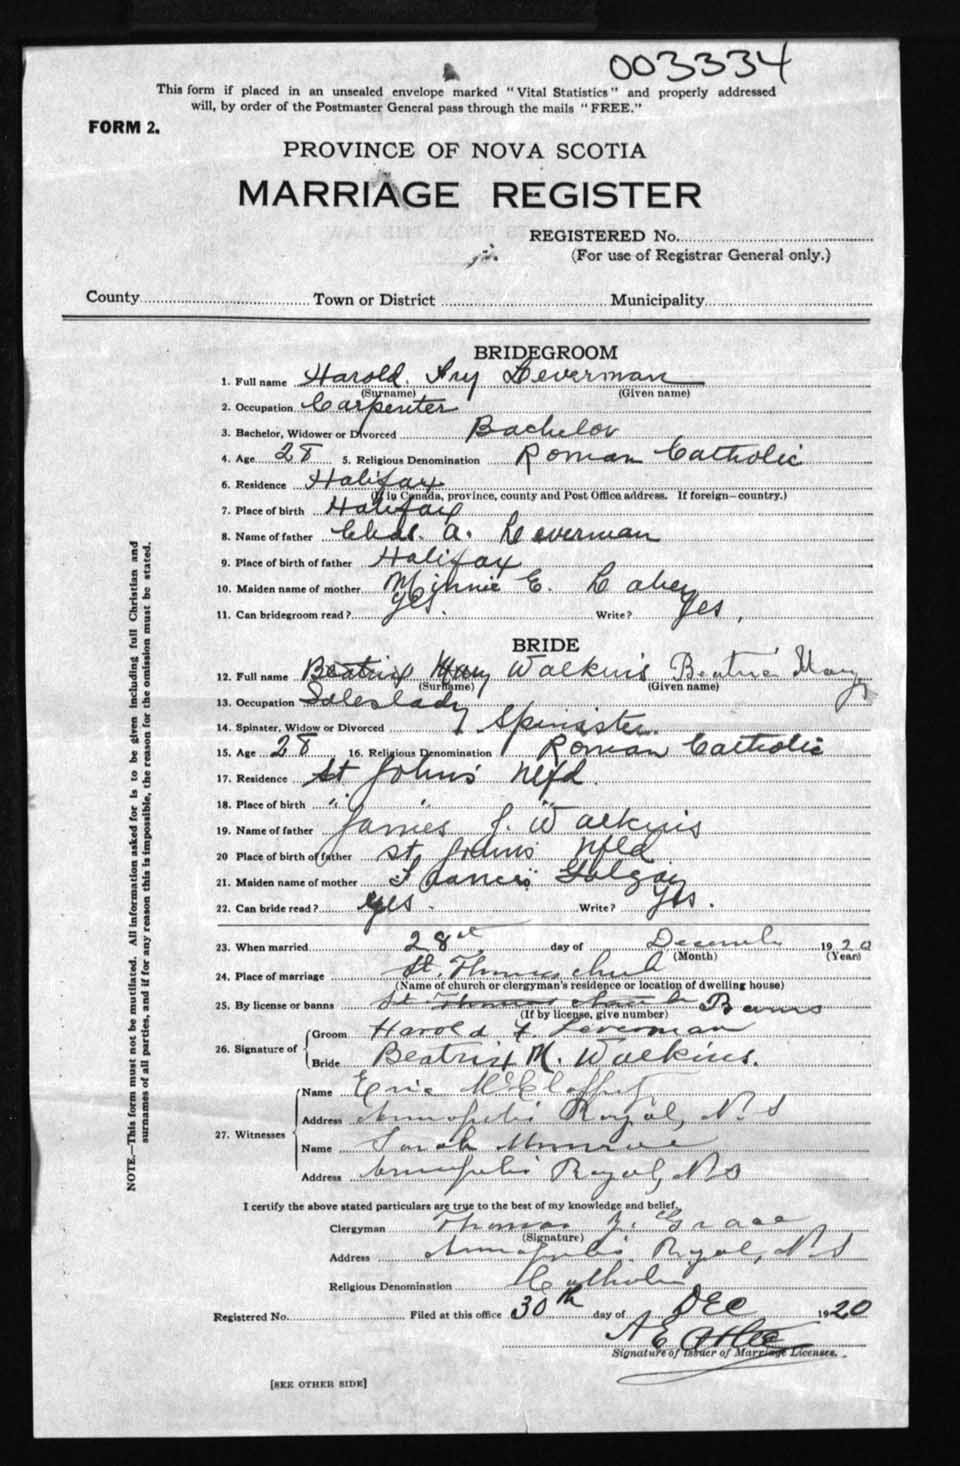 003334
This form if placed in an unsealed envelope marked "Vital Statistics" and properly addressed
will, by order of the Postmaster General pass through the mails "FREE."
FORM 2.
PROVINCE OF NOVA SCOTIA
MARRIAGE REGISTER
REGISTERED No.
(For use of Registrar General only.)
County Town or District Municipality
BRIDEGROOM
1. Full name Harold Leverman
(Surname) (Given name)
2. Occupation Carpenter
3. Bachelor, Widower or Divorced Bachelor
4. Age 28 5. Religious Denomination Roman Catholic
6. Residence Halifax
(If in Canada, province, county and Post Office address. If foreign—country.)
7. Place of birth Halifax
8. Name of father Chas. A. Leverman
9. Place of birth of father Halifax
10. Maiden name of mother Minnie E.
11. Can bridegroom read? yes. Write? Yes,
BRIDE
12. Full name Beatrix Mary Walkins Beatrix Mary
(Surname) (Given name)
13. Occupation Saleslady
14. Spinster, Widow or Divorced Spinister
15. Age 28 16. Religious Denomination Roman Catholic
17. Residence St John's Nfld.
18. Place of birth " " "
19. Name of father James J. Walkins
20 Place of birth of father St Johns Nfld
21. Maiden name of mother Francis
22. Can bride read? yes. Write? Yes.
23. When married 28 day of December 1920
(Month) (Year)
24. Place of marriage St. Thomas
(Name of church or clergyman's residence or location of dwelling house)
25. By license or banns St Thomas Banns
(If by license, give number)
26. Signature of
Groom Harold Leverman
Bride Beatrix M. Walkins.
27. Witnesses
Name Eric
Address Annapolis Royal, N.S
Name Sarah Munroe
Address Annapolis Royal, N S
I certify the above stated particulars are true to the best of my knowledge and belief.
Clergyman Thomas Grace
(Signature)
Address Annapolis Royal, N.S
Religious Denomination Catholic
Registered No. Filed at this office 30th day of DEC 1920
A E
Signature of Issuer of Marriage Licenses.
[SEE OTHER SIDE]
NOTE.—This form must not be mutilated. All information asked for is to be given including full Christian and
surnames of all parties, and if for any reason this is impossible, the reason for the omission must be stated.